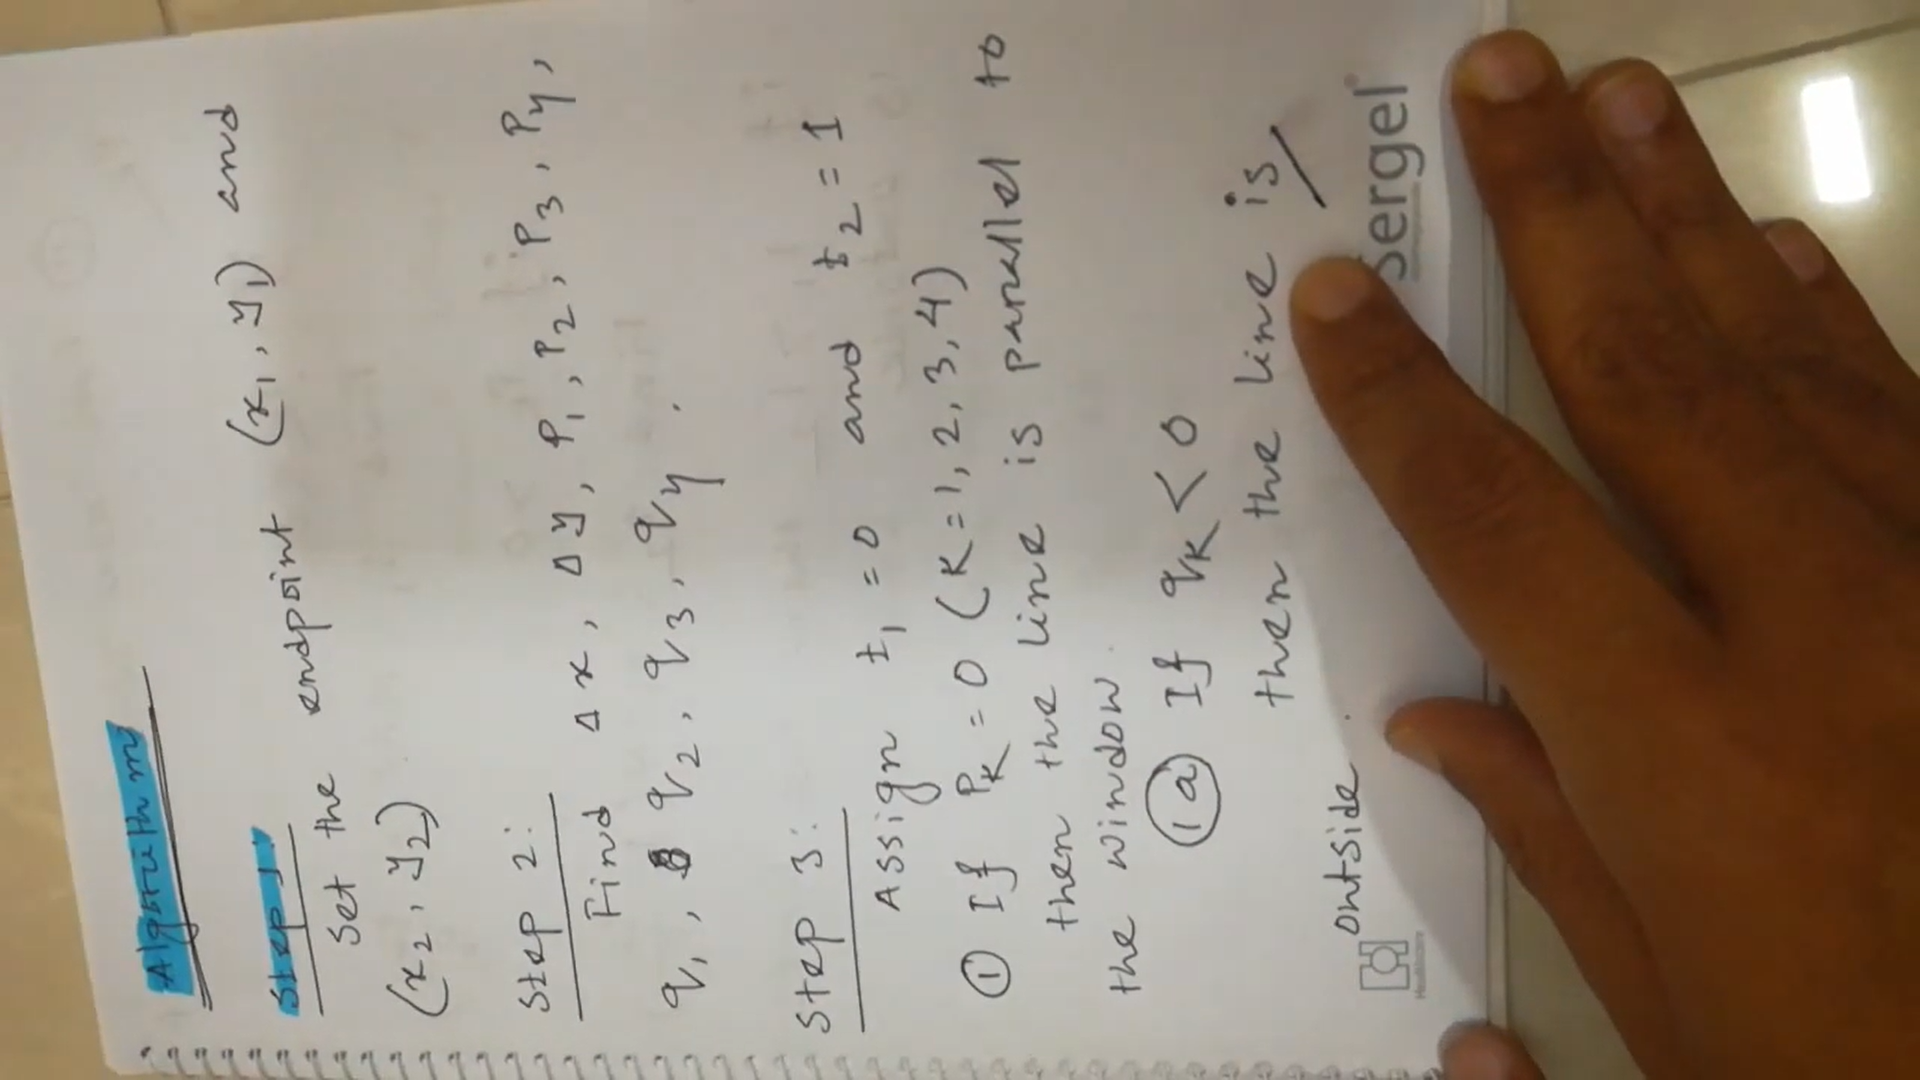 Algorithm
Step 1:
Set the endpoint (x1, y1) and
(x2, y2)
Step 2:
Find Δx, Δy, P1, P2, P3, P4,
q1, q2, q3, q4.
Step 3:
Assign t1 = 0 and t2 = 1
① If PK = 0 (K = 1, 2, 3, 4)
then the line is parallel to
the window.
1a If qK < 0
then the line is
outside.
Healthcare
Sergel